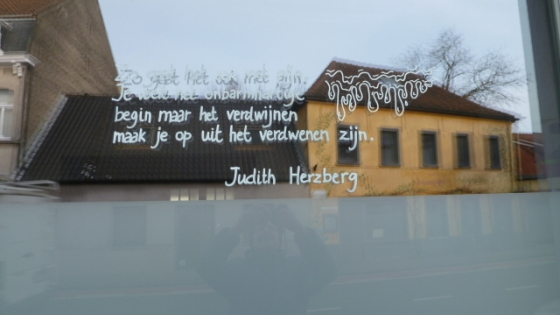 Zo gaat het ook met zijn.
Je ziet het onbarmhartige
begin maar het verdwijnen
maak je op uit het verdwenen zijn.
Judith Herzberg